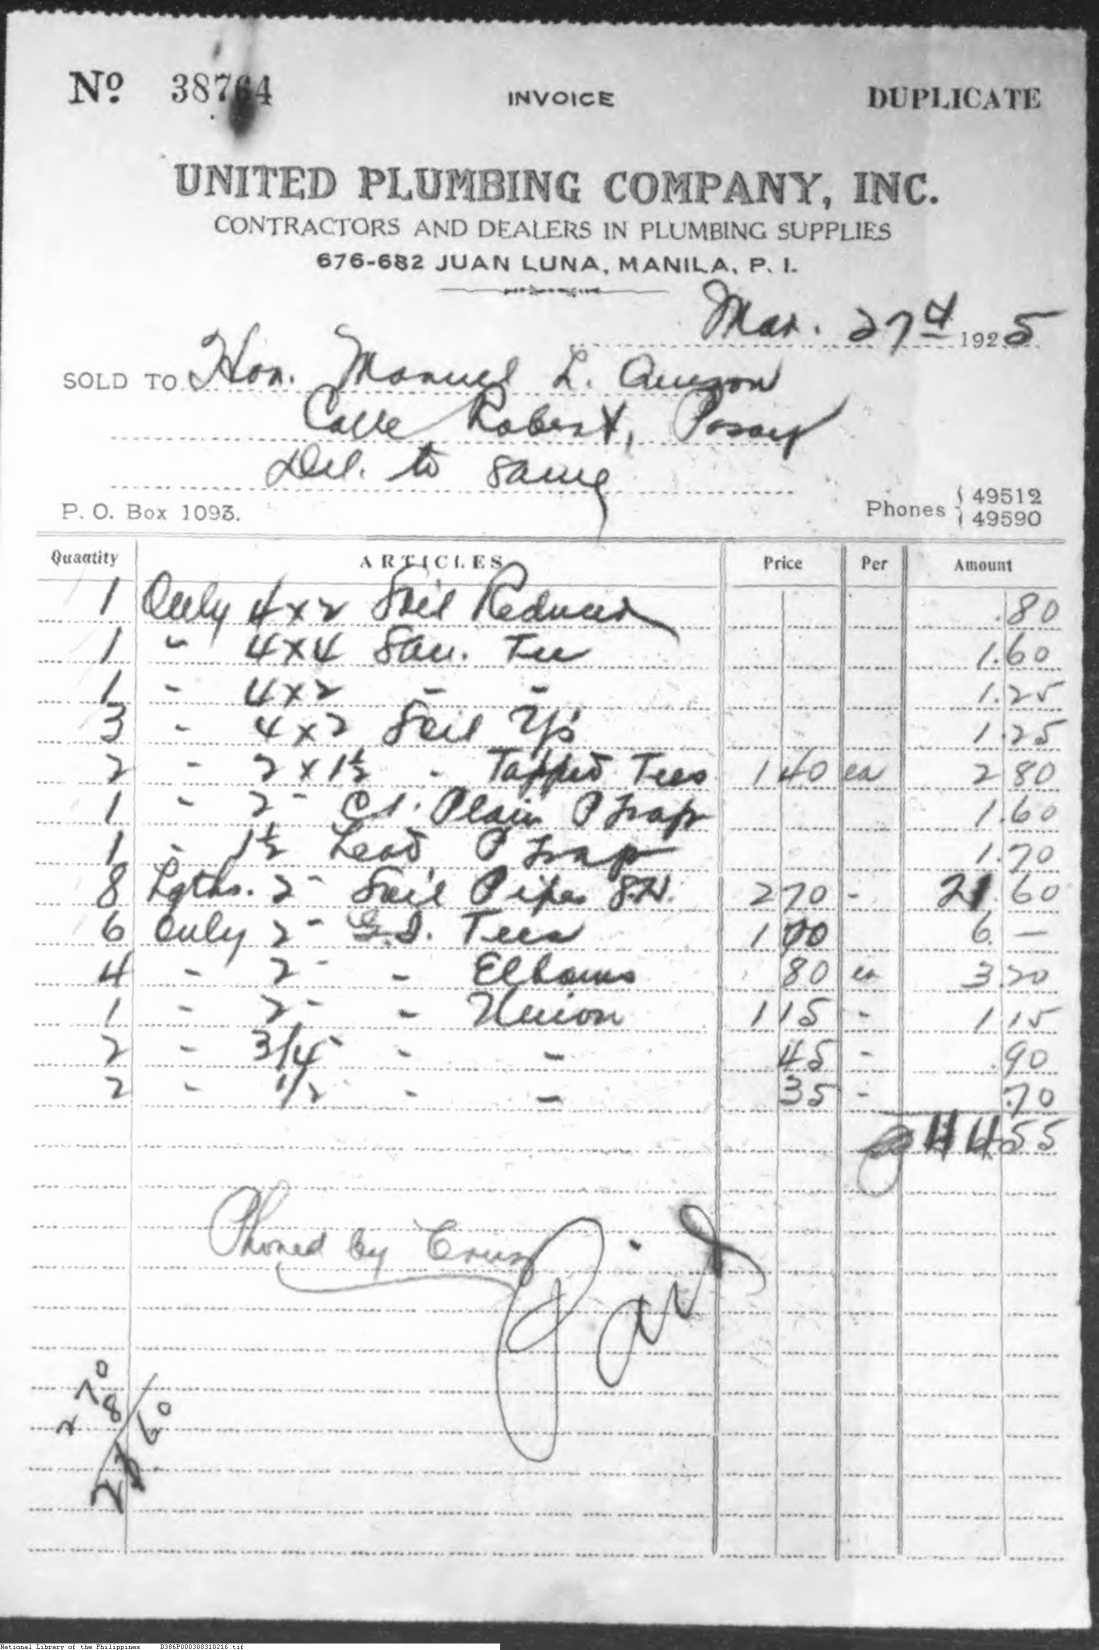 Nº 38764 INVOICE DUPLICATE
UNITED PLUMBING COMPANY, INC.
CONTRACTORS AND DEALERS IN PLUMBING SUPPLIES
676-682 JUAN LUNA, MANILA, P. I.
Mar. 27th 1925
SOLD TO Hon. Manuel L. Quezon
Calle Robert, Pasay
Del. to same
P. O. Box 1093. Phones { 49512
49590
Quantity ARTICLES Price Per Amount
1 Only 4 x 2 Soil Reducer .80
1 " 4 x 4 San. Tee 1.60
1 " 4 x 2 " " 1.25
3 " 4 x 2 Soil Y's 1.25
2 " 2 x 1½ " Tapped Tees 1 40 ea 2 80
1 " 2" C.I. Plain P Trap 1.60
1 " 1½ Lead P Trap 1.70
8 Lgths. 2" Soil Pipes S.H. 2 70 " 21.60
6 Only 2" G.I. Tees 1 00 6. —
4 " 2" " Elbows 80 ea 3.20
1 " 2" " Union 1 15 " 1 15
2 " 3/4" " " 45 " .90
2 " 1/2" " " 35 " .70
44 55
Phoned by Cruz
Paid
2 70
8
21 60
National Library of the Philippines D386P000300310216.tif